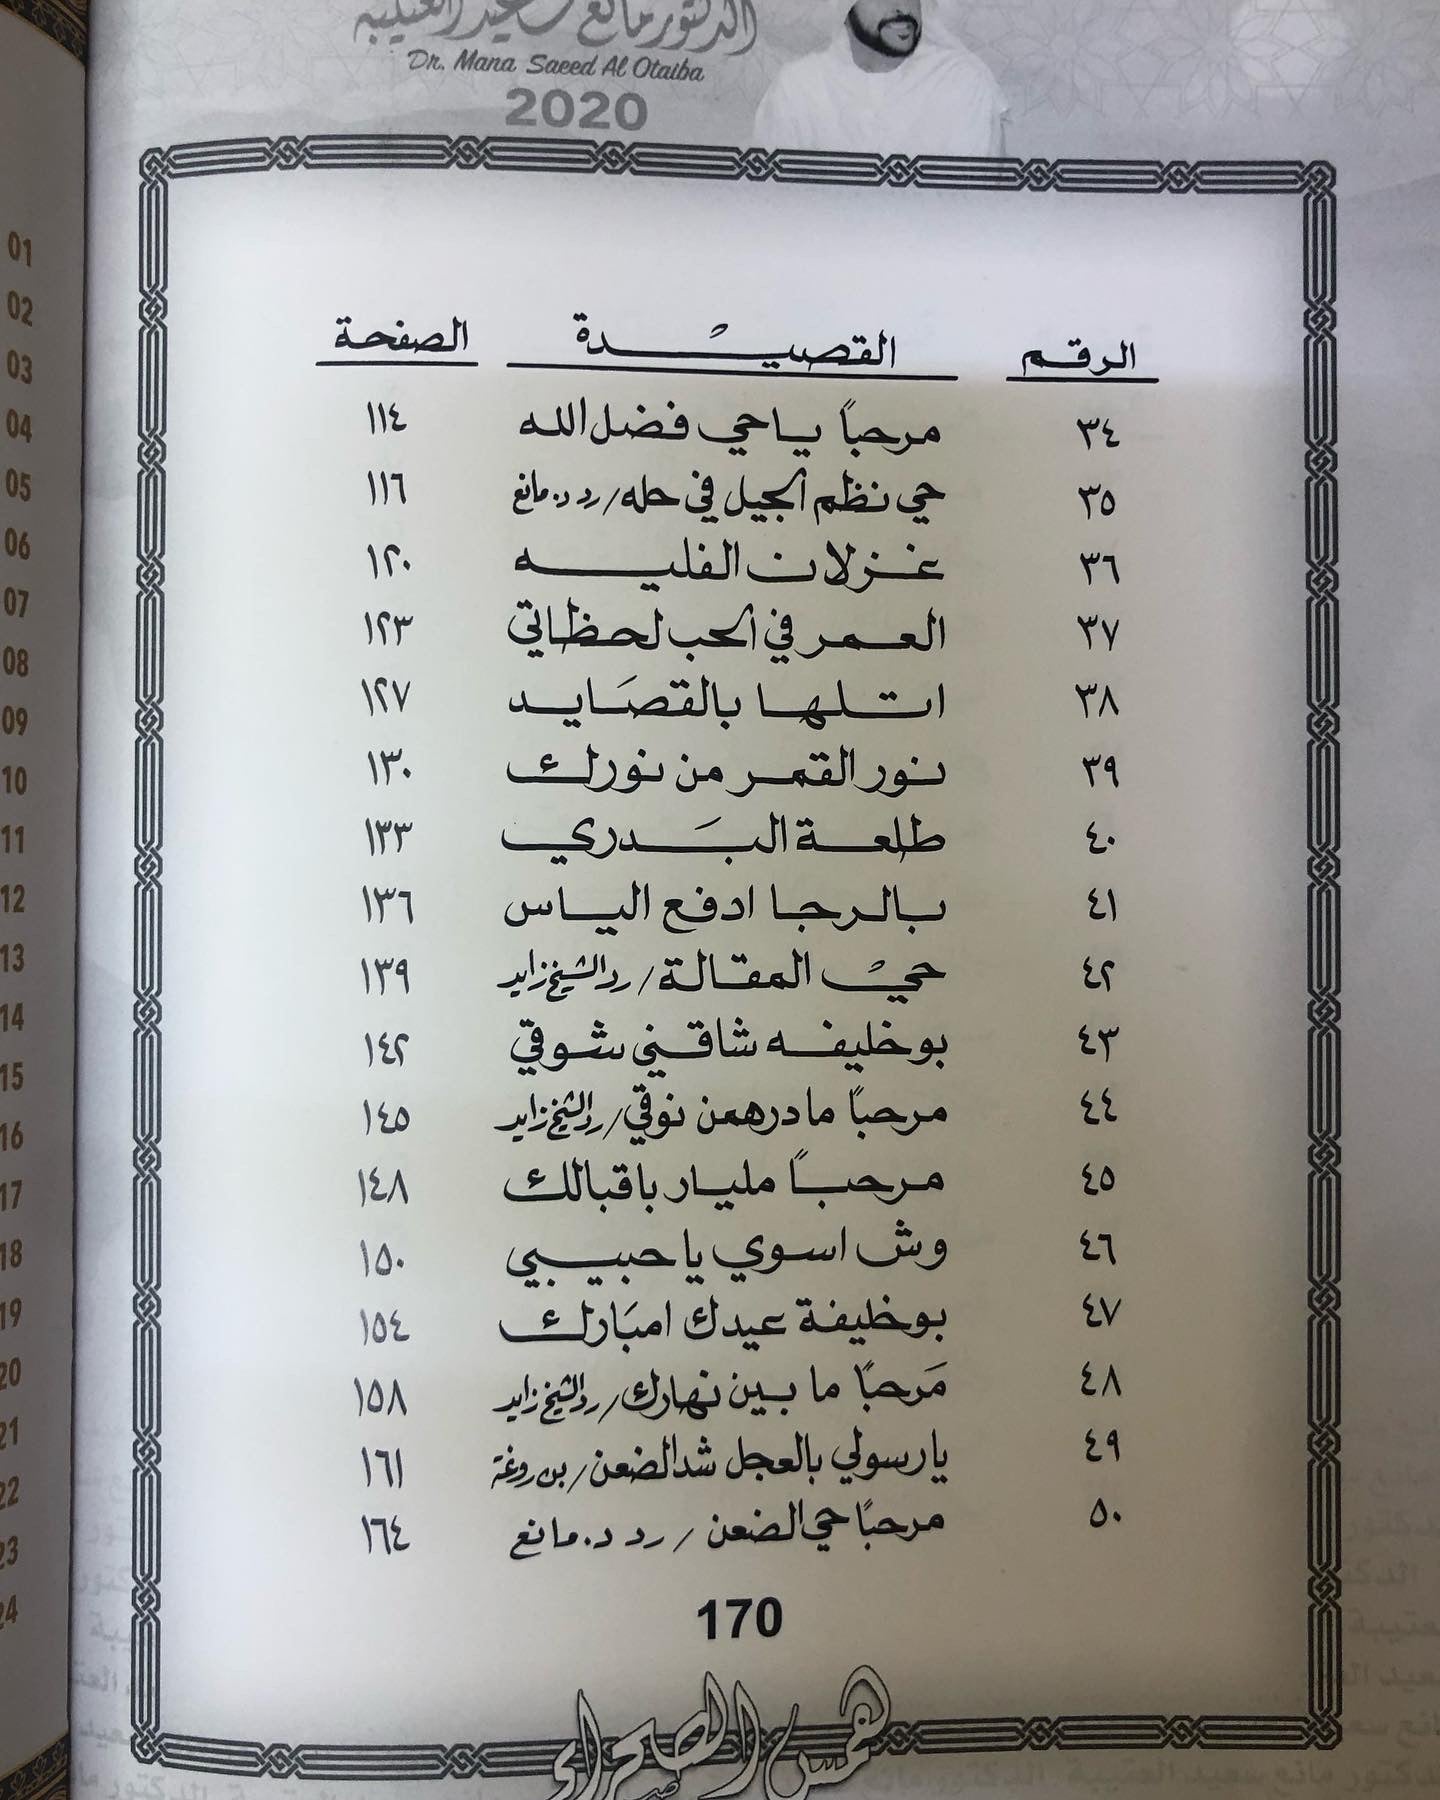 الدكتور مانع سعيد العتيبه
Dr. Mana Saeed Al Otaiba
2020
الرقم القصيدة الصفحة
٣٤ مرحباً ياحي فضل الله ١١٤
٣٥ حي نظم الجيل في حله / رد د. مانع ١١٦
٣٦ غزلان الفليه ١٢٠
٣٧ العمر في الحب لحظاتي ١٢٣
٣٨ اتلها بالقصَايد ١٢٧
٣٩ نور القمر من نورك ١٣٠
٤٠ طلعة البَدري ١٣٣
٤١ بالرجا ادفع الياس ١٣٦
٤٢ حيْ المقالة / رد الشيخ زايد ١٣٩
٤٣ بوخليفه شاقني شوقي ١٤٢
٤٤ مرحباً مادرهمن نوقي / رد الشيخ زايد ١٤٥
٤٥ مرحباً مليار باقبالك ١٤٨
٤٦ وش اسوي ياحبيبي ١٥٠
٤٧ بوخليفة عيدك امبَارك ١٥٤
٤٨ مَرحباً ما بين نهارك / رد الشيخ زايد ١٥٨
٤٩ يارسولي بالعجل شد الضعن / بن روغة ١٦١
٥٠ مرحباً حي الضعن / رد د. مانع ١٦٤
170
همس الصحراء
01
02
03
04
05
06
07
08
09
10
11
12
13
14
15
16
17
18
19
20
21
22
23
24